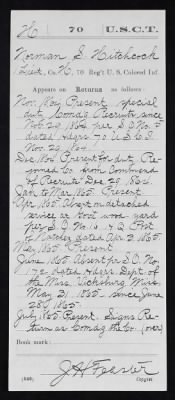 H 70 U.S.C.T.
Norman S. Hitchcock
Lieut., Co. H, 70 Reg't U. S. Colored Inf.
Appears on Returns as follows:
Nov. 1864 Present special
duty Comdg Recruits since
Nov. 29, 1864 per S.O. No.
dated Hdqrs 70 U.S.C.I.
Nov. 29, 1864.
Dec. 1864 Present for duty Re-
joined Co. from Command
of Recruits Dec. 1864.
Jan. to Mar. 1865. Present
Apr. 1865 Absent on detached
service at Govt wood yard
per S.O. No. Hd Q. Post
of Natchez dated Apr. 2, 1865.
May 1865 Present
June 1865 Absent per S.O. No.
dated Hdqrs. Dept. of
the Miss. Vicksburg Miss.
May 31, 1865 since June
28, 1865.
July 1865 Present. Signs Re-
turn as Comdg the Co. (over)
Book mark:
J H Feaster
(546) Copyist